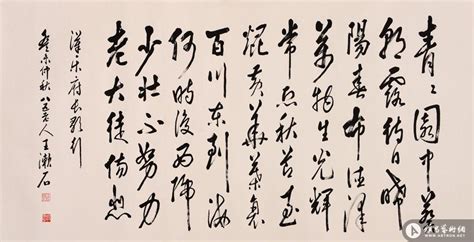 青〻園中葵
朝露待日晞
陽春布德澤
萬物生光輝
常恐秋節至
焜黃華葉衰
百川東到海
何時復西歸
少壯不努力
老大徒傷悲
漢樂府長歌行
癸未仲秋八五老人王漱石